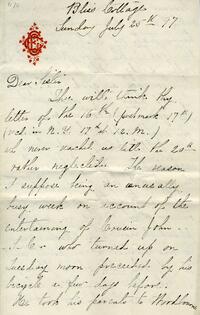 Bliss Cottage
Sunday July 25th 97
Dear Sister
The with thanks thy
letter of the 16th (postmark 17th)
(recd. in N.Y. 17th 12.M.)
never reached us till the 20th
rather neglectful. The reason
I suppose being an unusually
busy week on account of the
entertaining of Cousin John
who turned up on
Tuesday noon preceded by his
bicycle a few days before.
We took his parcels to